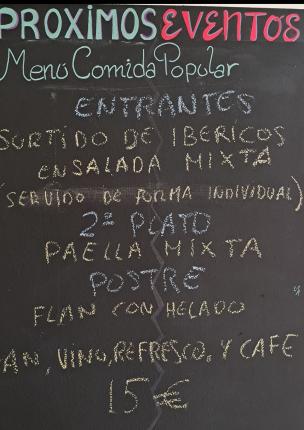 PROXIMOS EVENTOS
Menú Comida Popular
ENTRANTES
SURTIDO DE IBERICOS
ENSALADA MIXTA
(SERVIDO DE FORMA INDIVIDUAL)
2º PLATO
PAELLA MIXTA
POSTRE
FLAN CON HELADO
AN, VINO, REFRESCO, Y CAFE
15 €